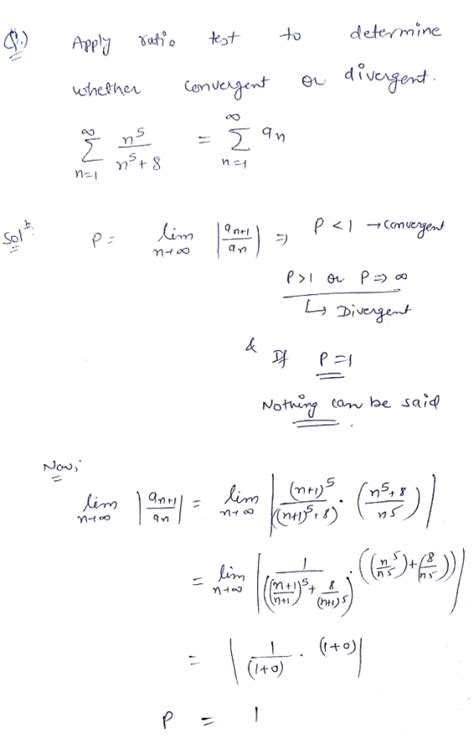 Q.) Apply ratio test to determine
whether convergent or divergent.
∞ ∑ n=1 n^5/(n^5+8) = ∞ ∑ n=1 a_n
Sol^n: P = lim n→∞ |a_{n+1}/a_n| ⇒ P < 1 → convergent
P>1 or P ⇒ ∞
↳ Divergent
& If P=1
Nothing can be said.
Now,
lim n→∞ |a_{n+1}/a_n| = lim n→∞ |(n+1)^5/((n+1)^5+8) · ((n^5+8)/n^5)|
= lim n→∞ |1/(((n+1)/(n+1))^5 + 8/(n+1)^5) · ((n^5/n^5)+(8/n^5))|
= |1/(1+0) · (1+0)|
P = 1